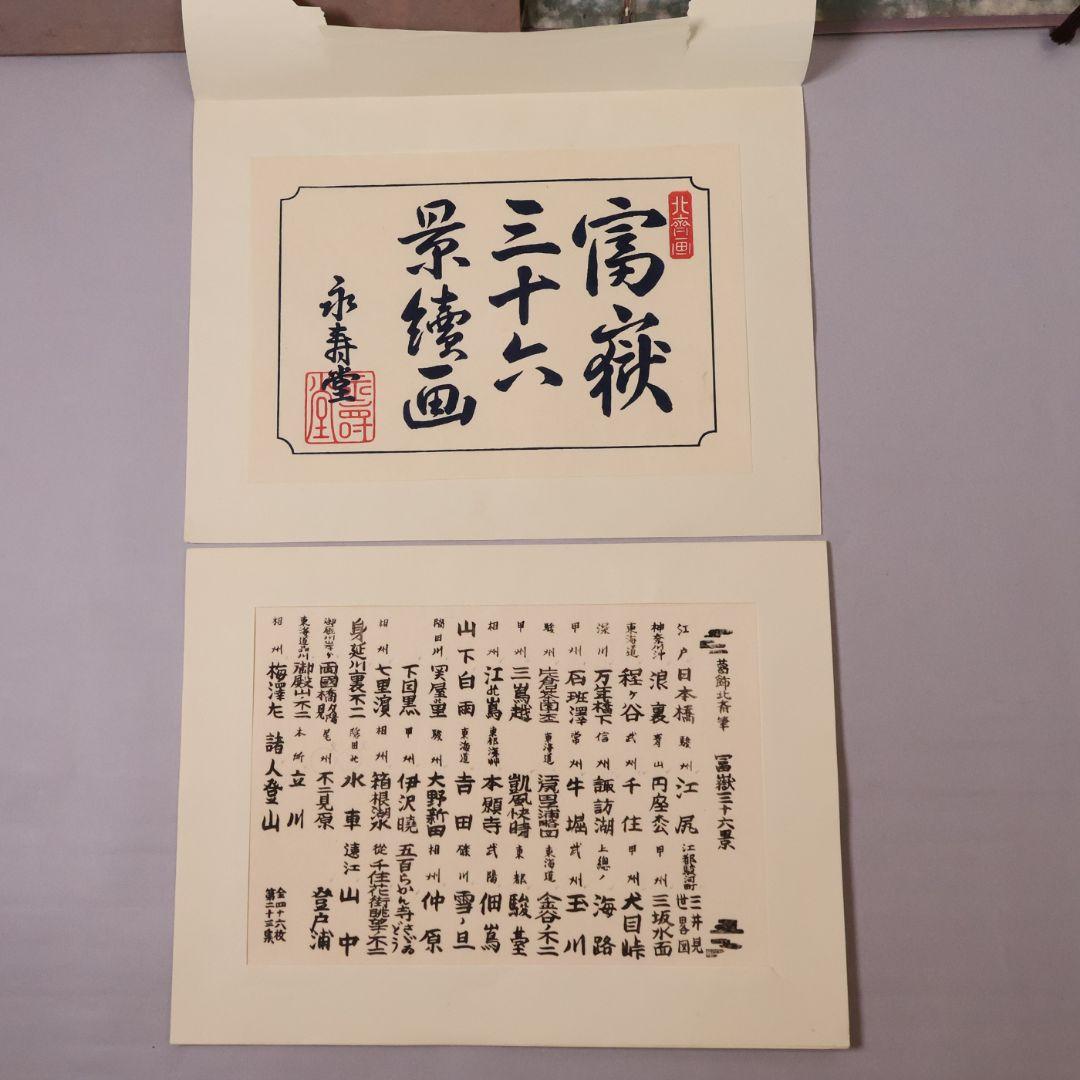 北齋画
富嶽
三十六
景續画
永寿堂
葛飾北斎筆 冨嶽三十六景
江戸日本橋 駿州江尻 江都駿河町三井見世畧図
神奈川沖浪裏 青山円座松 甲州三坂水面
東海道程ヶ谷 武州千住 甲州犬目峠
深川万年橋下 信州諏訪湖 上總ノ海路
甲州石班澤 常州牛堀 武州玉川
駿州 東海道 東海道金谷ノ不二
甲州三嶌越 凱風快晴 東都駿臺
相州江の嶌 東都浅艸本願寺 武陽佃嶌
山下白雨 東海道吉田 礫川雪ノ旦
隅田川関屋の里 駿州大野新田 相州仲原
下目黒 甲州伊沢暁 五百らかん寺さざゐどう
相州七里濱 相州箱根湖水 従千住花街眺望ノ不二
身延川裏不二 隠田の水車 遠江山中
御厩川岸ゟ両國橋夕陽見 尾州不二見原 登戸浦
東海道品川御殿山ノ不二 本所立川
相州梅澤左 諸人登山
全四十六枚
第二十三集